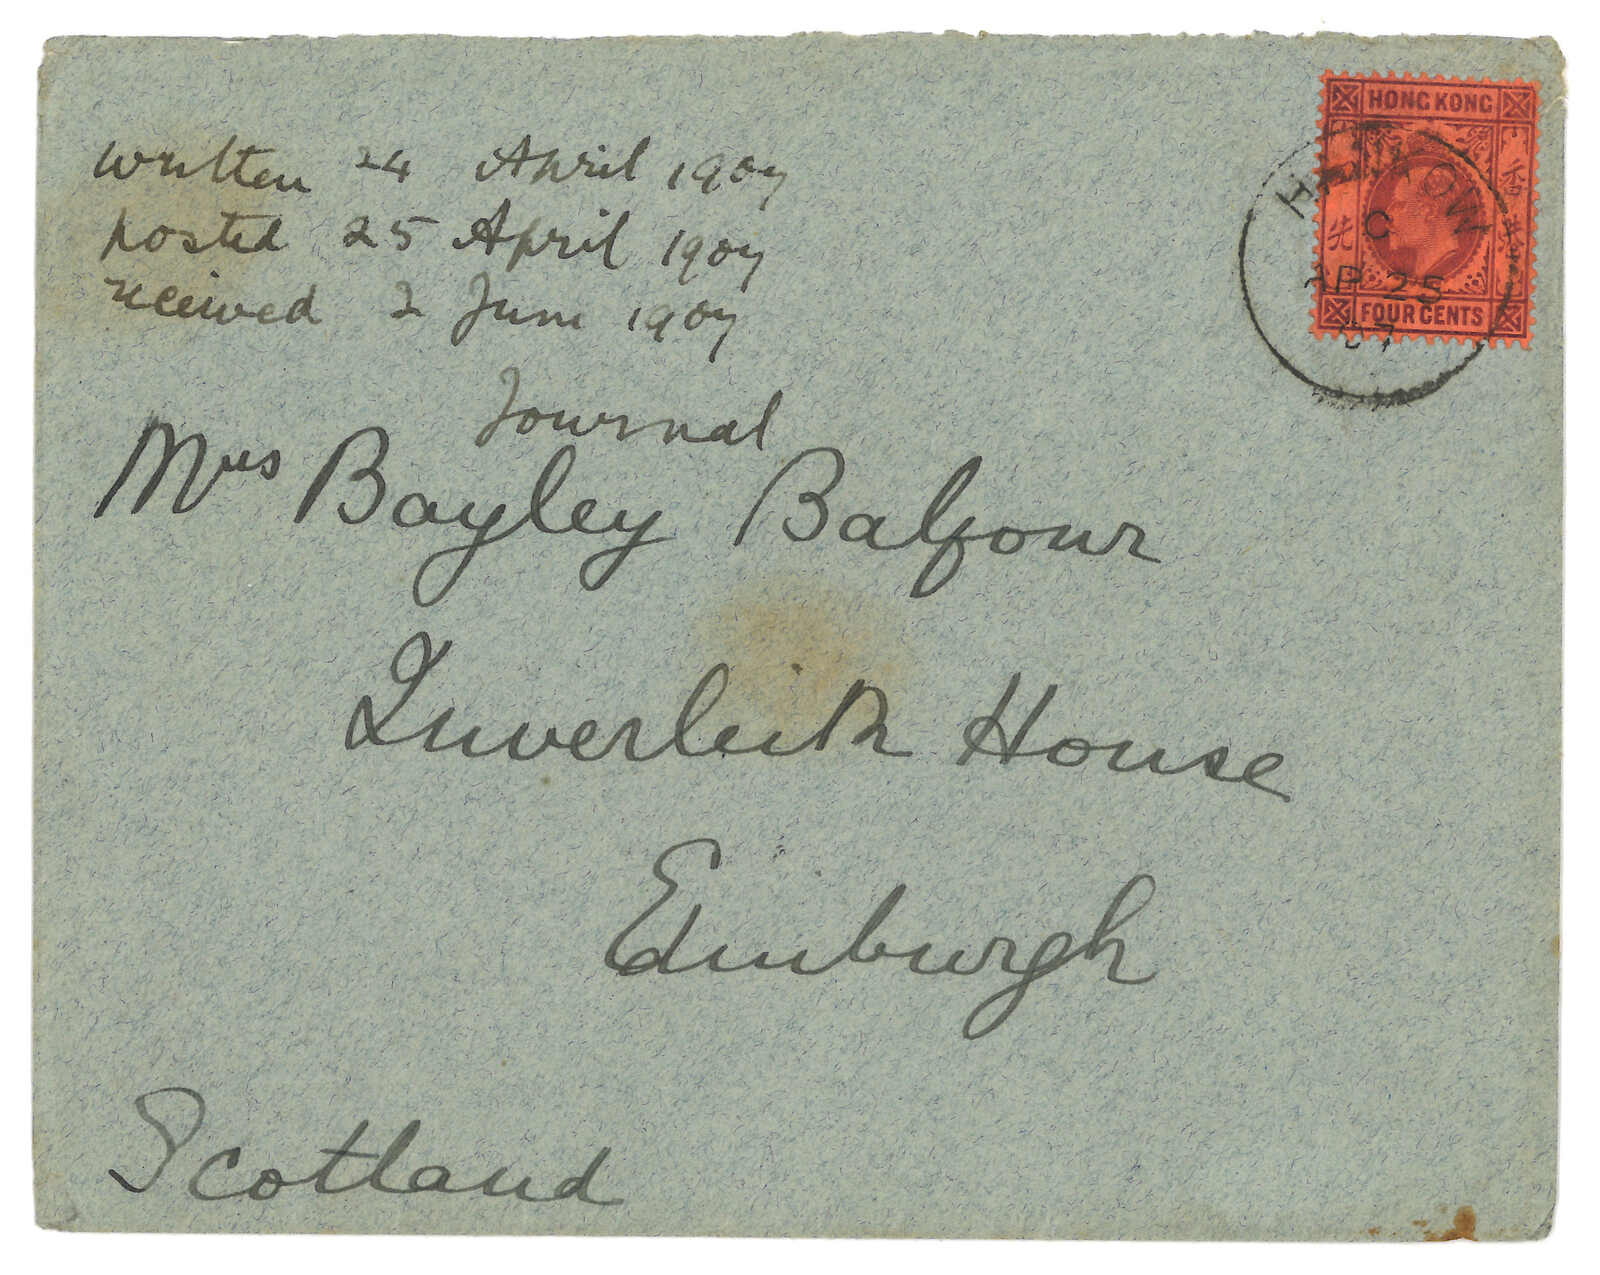 written 24 April 1907
posted 25 April 1907
received 2 June 1907
Journal
Mrs Bayley Balfour
Inverleith House
Edinburgh
Scotland
HONG KONG
香港
先
FOUR CENTS
HANKOW
C
AP 25
07